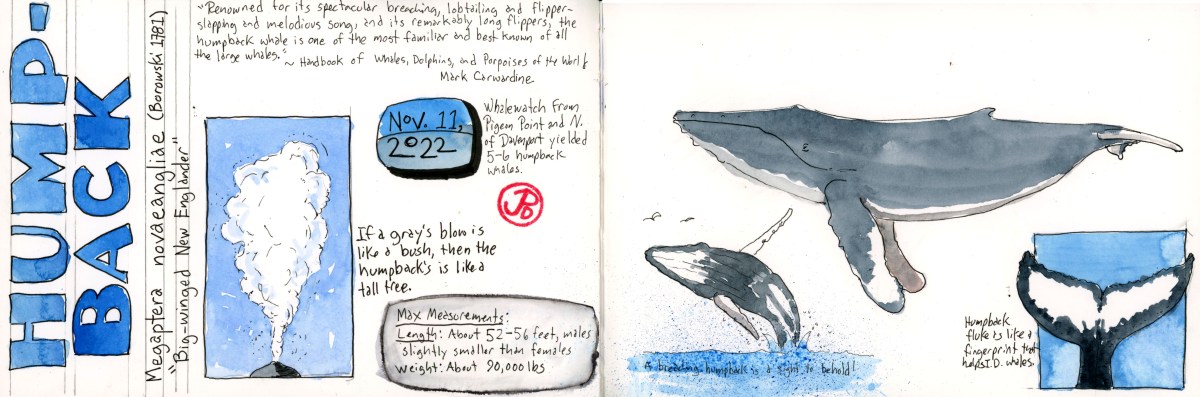 HUMP-
BACK
Megaptera novaeangliae (Borowski 1781)
"Big-winged New Englander"
"Renowned for its spectacular breaching, lobtailing and flipper-
slapping and melodious song, and its remarkably long flippers, the
humpback whale is one of the most familiar and best known of all
the large whales."
~ Handbook of Whales, Dolphins, and Porpoises of the World
Mark Carwardine
Nov. 11,
2022
Whalewatch from
Pigeon Point and N.
of Davenport yielded
5-6 humpback
whales.
If a gray's blow is
like a bush, then the
humpback's is like a
tall tree.
Max Measurements:
Length: About 52-56 feet, males
slightly smaller than females
Weight: About 90,000 lbs
A breaching humpback is a sight to behold!
Humpback
fluke is like a
fingerprint that
helps I.D. whales.